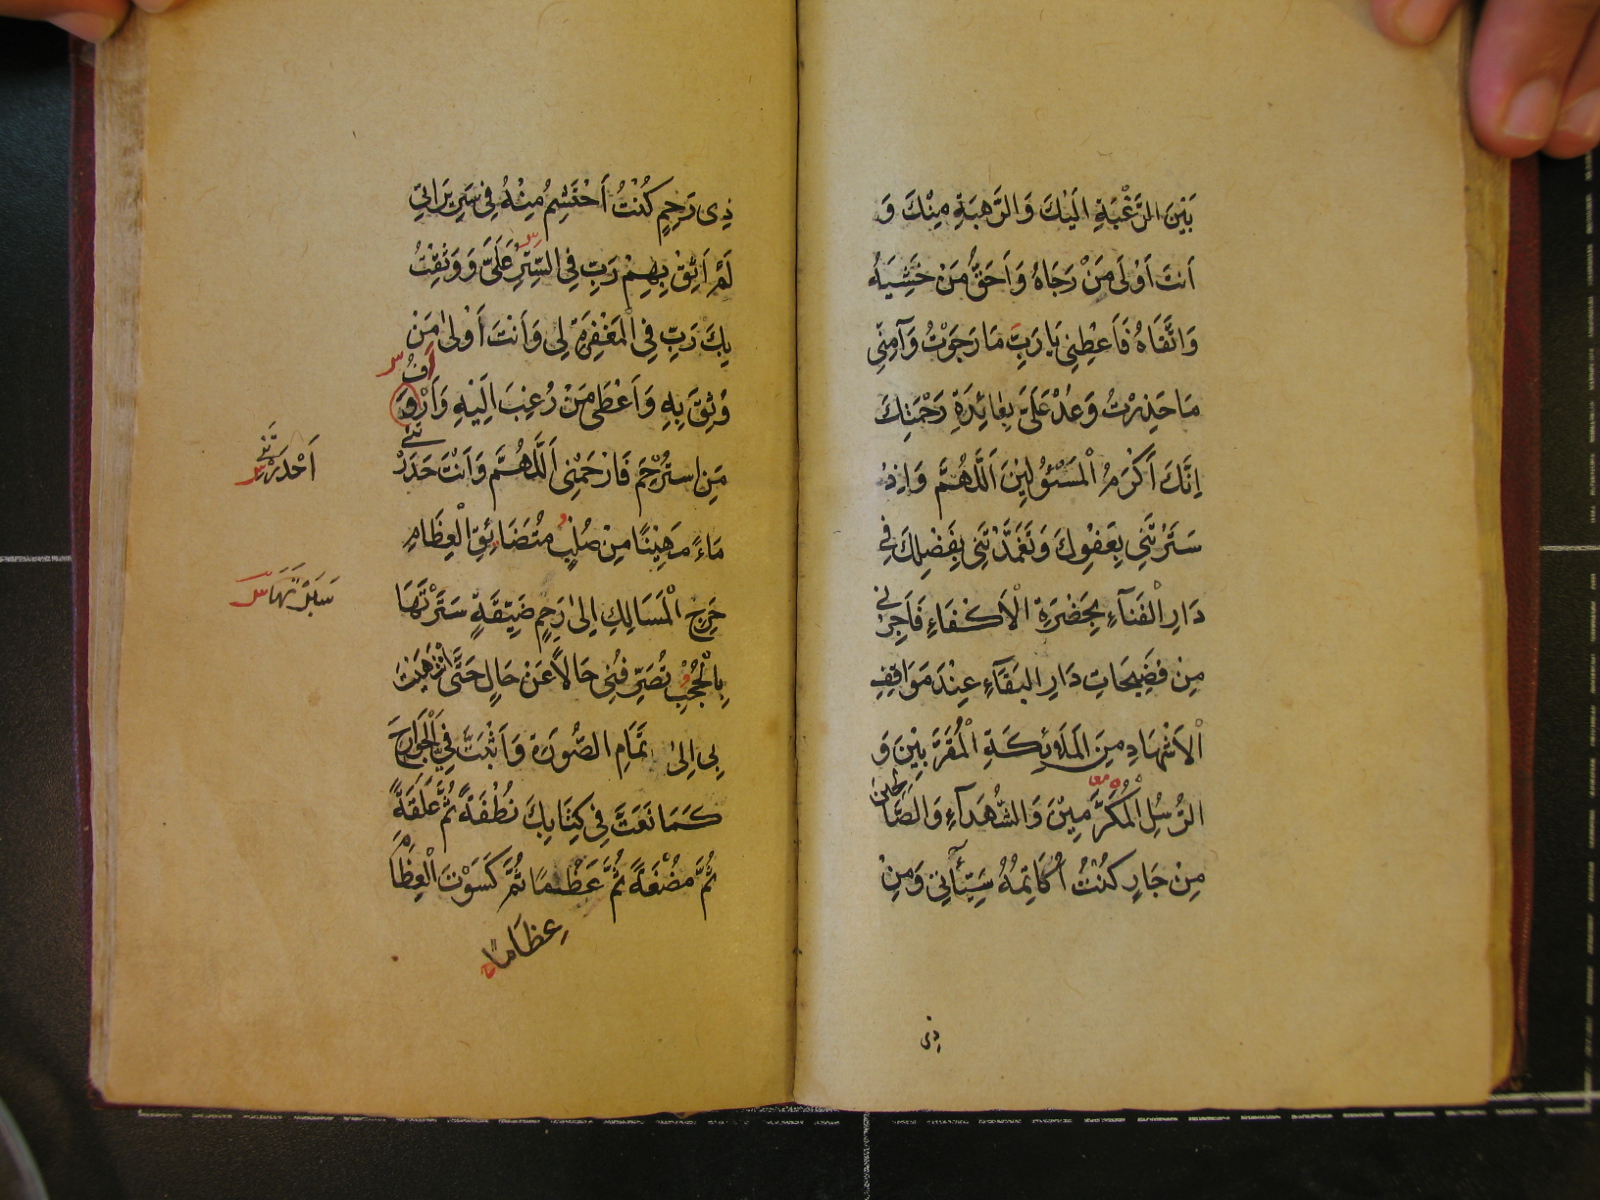 بَيْنَ الرَّغْبَةِ اِلَيْكَ وَالرَّهْبَةِ مِنْكَ وَ
اَنتَ اَوْلَى مَنْ رَجَاهُ وَاَحَقُّ مَنْ خَشِيَهُ
وَاتَّقَاهُ فَاَعْطِنِى يَا رَبِّ مَا رَجَوْتُ وَآمِنِّى
مَا حَذِرْتُ وَعُدْ عَلَىَّ بِعَائِدَةِ رَحْمَتِكَ
اِنَّكَ اَكْرَمُ الْمَسْئُولِينَ اَللَّهُمَّ وَاِذْ
سَتَرْتَنِى بِعَفْوِكَ وَتَغَمَّدْتَنِى بِفَضْلِكَ فِى
دَارِ الْفَنَآءِ بِحَضْرَةِ الْاَكْفَاءِ فَاَجِرْنِى
مِن فَضِيحَاتِ دَارِ الْبَقَآءِ عِنْدَ مَوَاقِفِ
الْاَشْهَادِ مِنَ الْمَلَائِكَةِ الْمُقَرَّبِينَ وَ
الرُّسُلِ الْمُكَرَّمِيْنَ وَالشُّهَدَآءِ وَالصَّالِحِينَ
مِنْ جَارٍ كُنْتُ اُكَاتِمُهُ سَيِّئَاتِى وَمِنْ
ذِى
ذِى رَحِمٍ كُنْتُ اَحْتَشِمُ مِنْهُ فِى سَرِيرَاتِى
لَمْ اَثِقْ بِهِمْ رَبِّ فِى السِّتْرِ عَلَىَّ وَوَثِقْتُ
بِكَ رَبِّ فِى الْمَغْفِرَةِ لِى وَاَنْتَ اَوْلىٰ مَنْ
وُثِقَ بِهِ وَاَعْطَى مَنْ رُغِبَ اِلَيْهِ وَاَرْوَفُ
اَفُ س
مَنِ اسْتُرْحِمَ فَارْحَمْنِى اَللَّهُمَّ وَاَنْتَ حَدَرْتَنِى
اَحْدَرْتَنِى س
مَاءً مَهِينًا مِنْ صُلْبٍ مُتَضَائِقِ الْعِظَامِ
حَرِجِ الْمَسَالِكِ اِلىٰ رَحِمٍ ضَيِّقَةٍ سَتَرْتَهَا
سَتَرْتَهَا س
بِالْحُجُبِ تُصَرِّفُنِى حَالاً عَنْ حَالٍ حَتَّى انْتَهَيْتَ
بِى اِلىٰ تَمَامِ الصُّورَةِ وَاَثْبَتَّ فِىَّ الْجَوَارِحَ
كَمَا نَعَتَّ فِى كِتَابِكَ نُطْفَةً ثُمَّ عَلَقَةً
ثُمَّ مُضْغَةً ثُمَّ عَظْمًا ثُمَّ كَسَوْتَ الْعِظَا
عِظَامًا